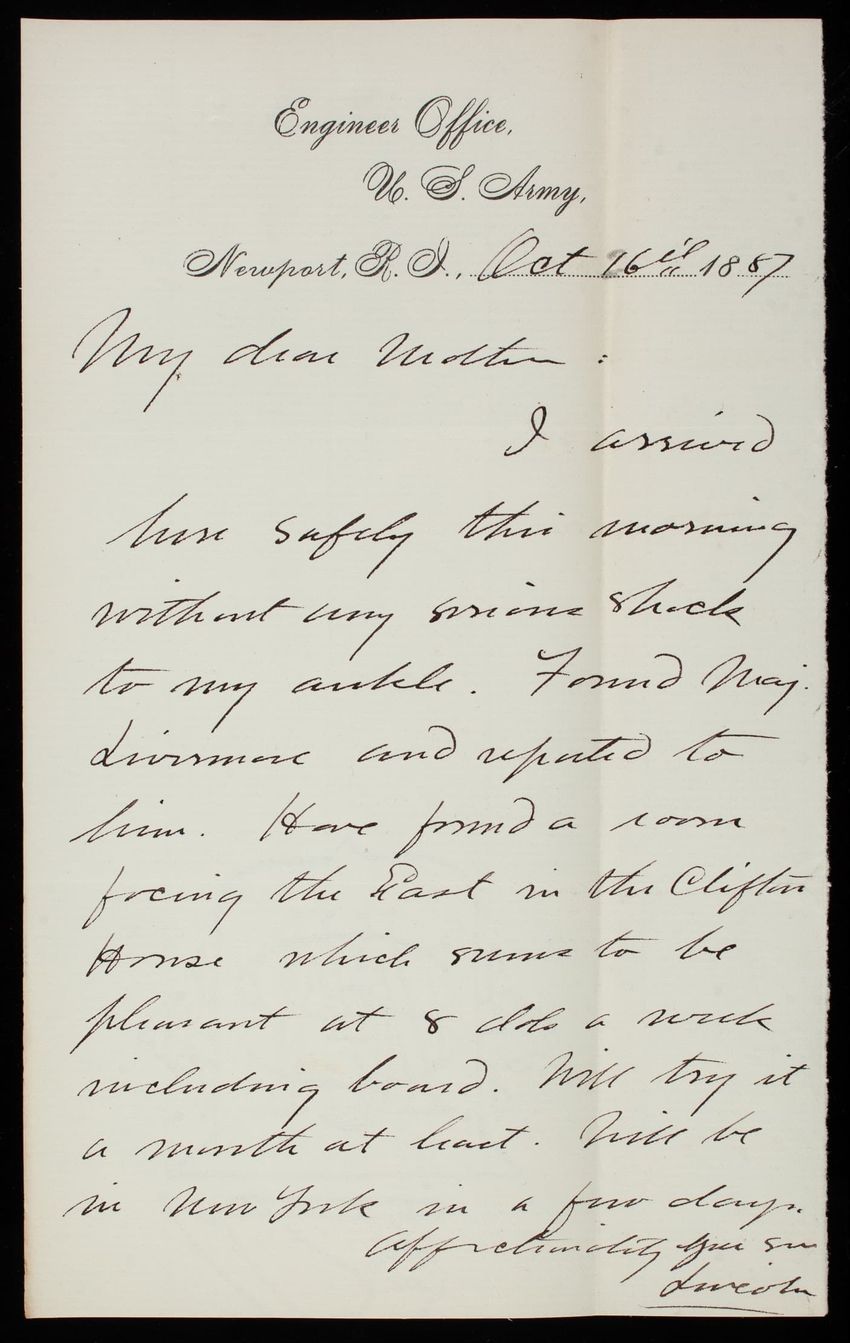 Engineer Office,
U. S. Army,
Newport, R. I., Oct 16th 1887
My dear Mother :
I arrived
here safely this morning
without any serious shock
to my ankle. Found Maj.
Livermore and reported to
him. Have found a room
facing the East in the Clifton
House which seems to be
pleasant at 8 dols a week
including board. Will try it
a month at least. Will be
in New York in a few days.
Affectionately your son
Lincoln